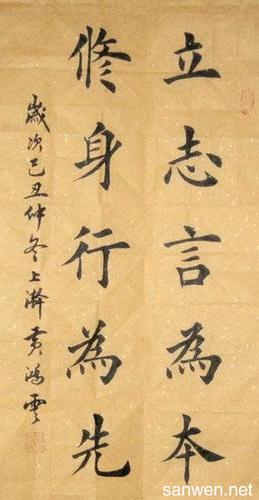 立志言為本
修身行為先
歲次己丑仲冬上澣黄鴻雲
sanwen.net